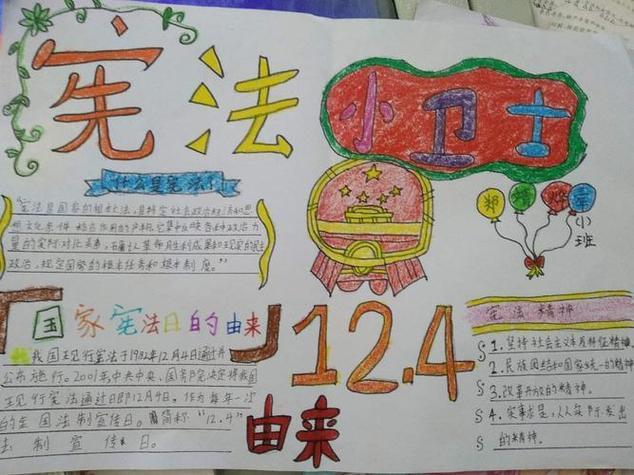 宪法
小卫士
什么是宪法?
"宪法是国家的根本法,是特定社会政治经济和思
想文化条件综合作用的产物,它集中反映各种政治力
量的实际对比关系,确认革命胜利成果和现实的民主
政治,规定国家的根本任务和根本制度。"
郑
小班
国家宪法日的由来
我国现行宪法于1982年12月4日通过并
公布施行。2001年中共中央、国务院决定将我国
现行宪法通过日即12月4日,作为每年一次
的全国法制宣传日。简称"12.4"
法制宣传日。
12.4
由来
宪法精神
1.坚持社会主义本质特征精神。
2.民族团结和国家统一的精神
3.改革开放的精神。
4.实事求是,从人民
的精神。